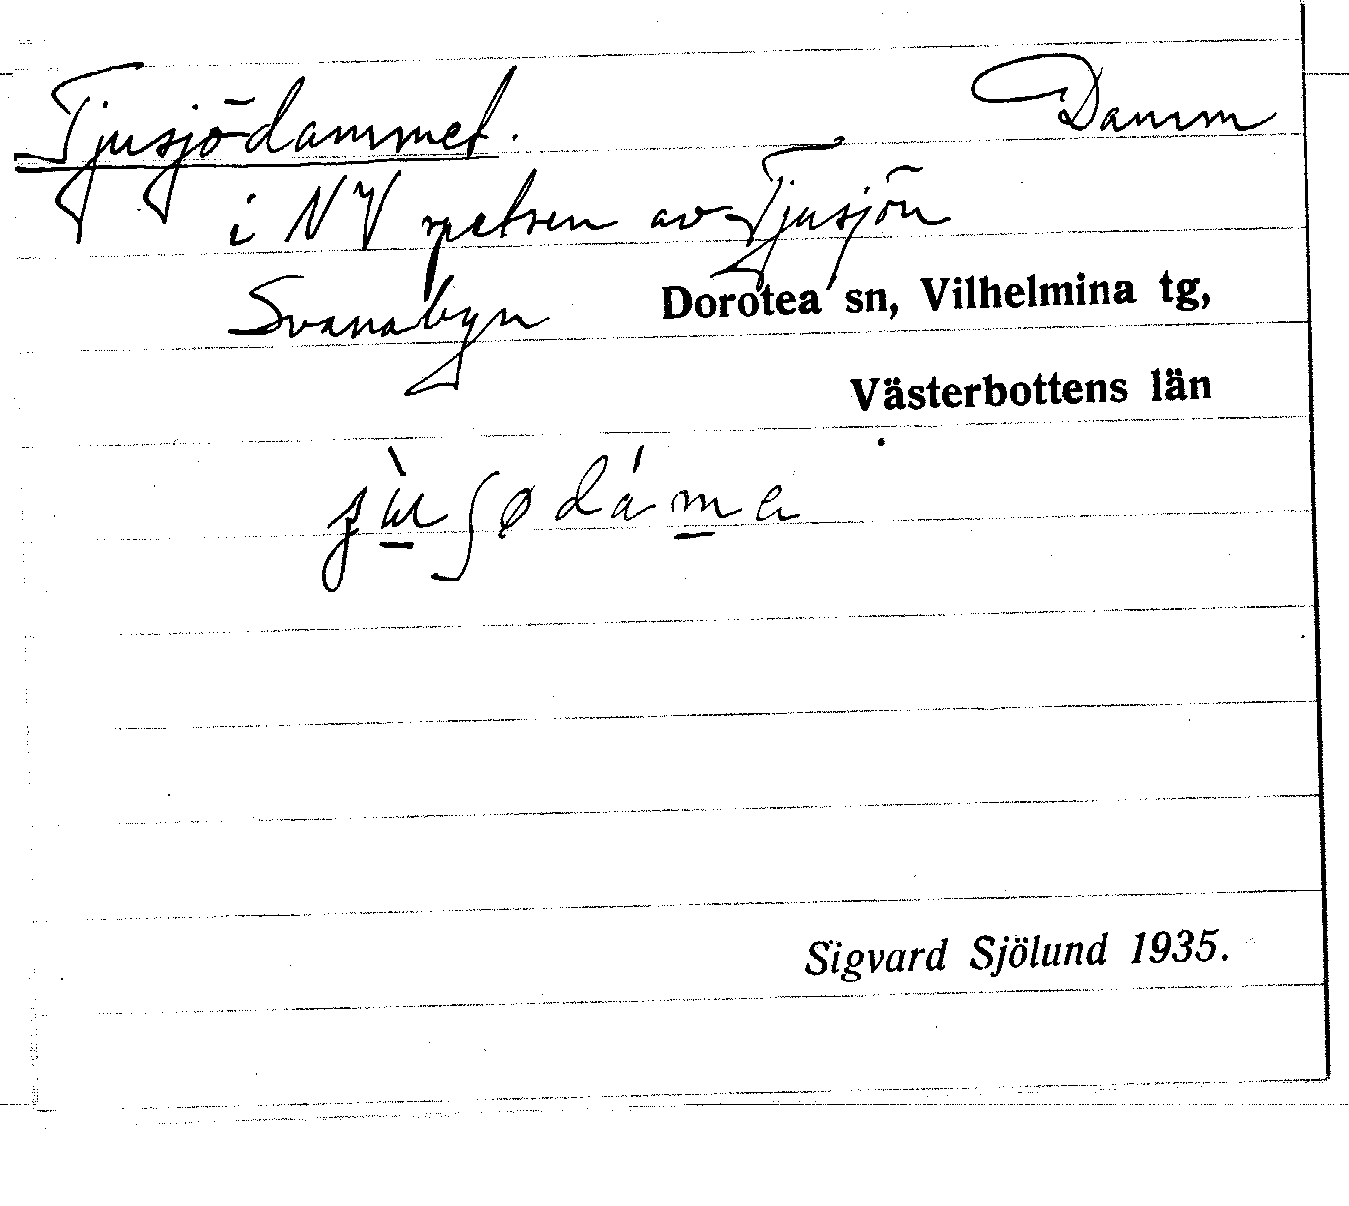 Tjusjödammet. Damm
i NV spetsen av Tjusjön
Svanabyn Dorotea sn, Vilhelmina tg,
Västerbottens län
Sigvard Sjölund 1935.